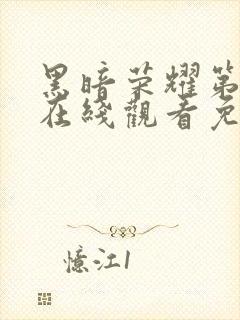 黑暗荣耀第
在綫觀看免
憶江1